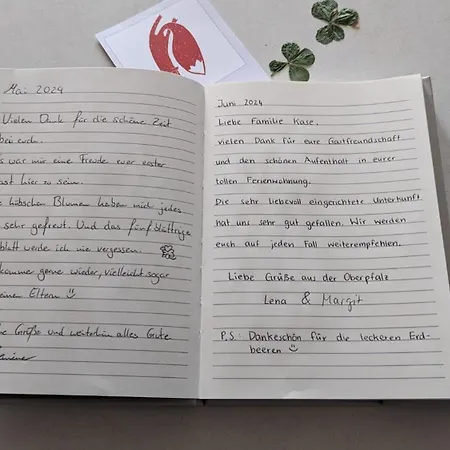 Mai 2024
Vielen Dank für die schöne Zeit
bei euch.
war mir eine Freude euer erster
hier zu sein.
hübschen Blumen haben mich jedes
sehr gefreut. Und das fünfblättrige
blatt werde ich nie vergessen.
komme gerne wieder, vielleicht sogar
meinen Eltern
Grüße und weiterhin alles Gute
Juni 2024
Liebe Familie Kase,
vielen Dank für eure Gastfreundschaft
und den schönen Aufenthalt in eurer
tollen Ferienwohnung.
Die sehr liebevoll eingerichtete Unterkunft
hat uns sehr gut gefallen. Wir werden
euch auf jeden Fall weiterempfehlen.
Liebe Grüße aus der Oberpfalz
Lena & Margit
P.S.: Dankeschön für die leckeren Erd-
beeren